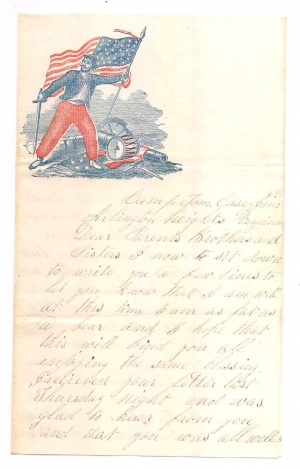 Camp Tom Casey
Arlington Heights Virginia
Dear Parents Brothers and
Sisters I now to sit down
to write you a few lines to
let you know that I am well
at this time I am as fat as
a bear and I hope that
this will find you all
enjoying the same blessing
I your letter last
Thursday night and was
glad to hear from you
and that you was all well